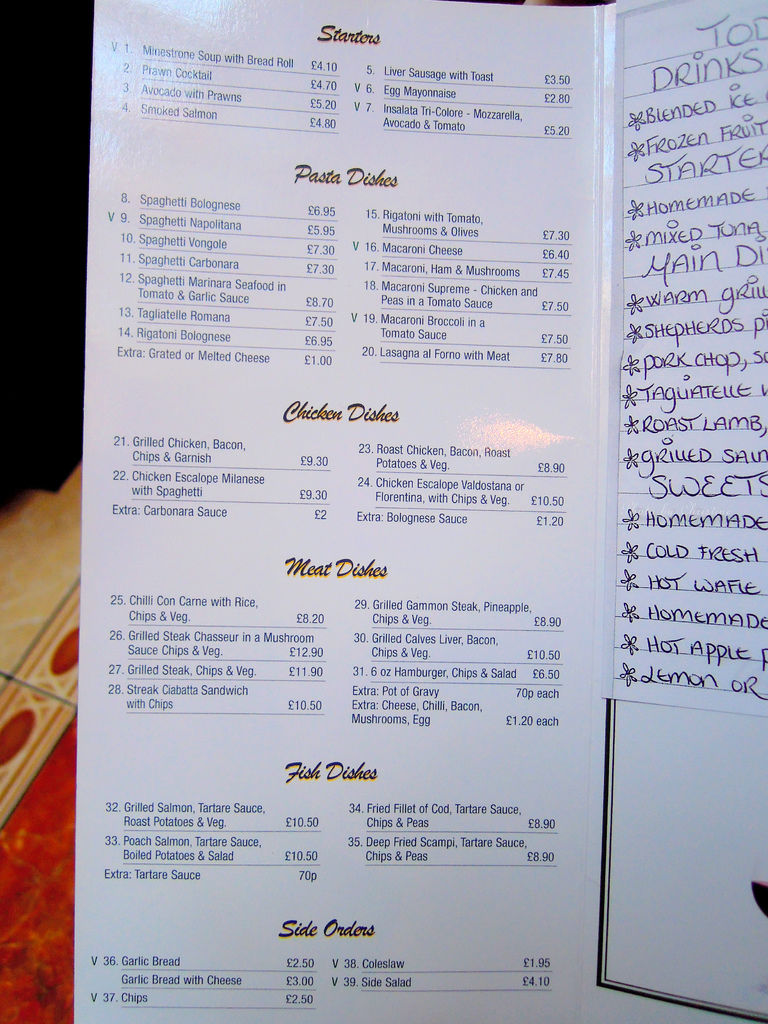 Starters
V 1. Minestrone Soup with Bread Roll £4.10
2. Prawn Cocktail £4.70
3. Avocado with Prawns £5.20
4. Smoked Salmon £4.80
5. Liver Sausage with Toast £3.50
V 6. Egg Mayonnaise £2.80
V 7. Insalata Tri-Colore - Mozzarella,
Avocado & Tomato £5.20
Pasta Dishes
8. Spaghetti Bolognese £6.95
V 9. Spaghetti Napolitana £5.95
10. Spaghetti Vongole £7.30
11. Spaghetti Carbonara £7.30
12. Spaghetti Marinara Seafood in
Tomato & Garlic Sauce £8.70
13. Tagliatelle Romana £7.50
14. Rigatoni Bolognese £6.95
Extra: Grated or Melted Cheese £1.00
15. Rigatoni with Tomato,
Mushrooms & Olives £7.30
V 16. Macaroni Cheese £6.40
17. Macaroni, Ham & Mushrooms £7.45
18. Macaroni Supreme - Chicken and
Peas in a Tomato Sauce £7.50
V 19. Macaroni Broccoli in a
Tomato Sauce £7.50
20. Lasagna al Forno with Meat £7.80
Chicken Dishes
21. Grilled Chicken, Bacon,
Chips & Garnish £9.30
22. Chicken Escalope Milanese
with Spaghetti £9.30
Extra: Carbonara Sauce £2
23. Roast Chicken, Bacon, Roast
Potatoes & Veg. £8.90
24. Chicken Escalope Valdostana or
Florentina, with Chips & Veg. £10.50
Extra: Bolognese Sauce £1.20
Meat Dishes
25. Chilli Con Carne with Rice,
Chips & Veg. £8.20
26. Grilled Steak Chasseur in a Mushroom
Sauce Chips & Veg. £12.90
27. Grilled Steak, Chips & Veg. £11.90
28. Streak Ciabatta Sandwich
with Chips £10.50
29. Grilled Gammon Steak, Pineapple,
Chips & Veg. £8.90
30. Grilled Calves Liver, Bacon,
Chips & Veg. £10.50
31. 6 oz Hamburger, Chips & Salad £6.50
Extra: Pot of Gravy 70p each
Extra: Cheese, Chilli, Bacon,
Mushrooms, Egg £1.20 each
Fish Dishes
32. Grilled Salmon, Tartare Sauce,
Roast Potatoes & Veg. £10.50
33. Poach Salmon, Tartare Sauce,
Boiled Potatoes & Salad £10.50
Extra: Tartare Sauce 70p
34. Fried Fillet of Cod, Tartare Sauce,
Chips & Peas £8.90
35. Deep Fried Scampi, Tartare Sauce,
Chips & Peas £8.90
Side Orders
V 36. Garlic Bread £2.50
Garlic Bread with Cheese £3.00
V 37. Chips £2.50
V 38. Coleslaw £1.95
V 39. Side Salad £4.10
TOD
DRINKS
BLENDED ICE
FROZEN FRUIT
STARTER
HOMEMADE
MIXED TUNA
MAIN DI
WARM GRILL
SHEPHERDS P
PORK CHOP, S
TAGLIATELLE
ROAST LAMB,
GRILLED
SWEETS
HOMEMADE
COLD FRESH
HOT WAFLE
HOMEMADE
HOT APPLE
LEMON OR